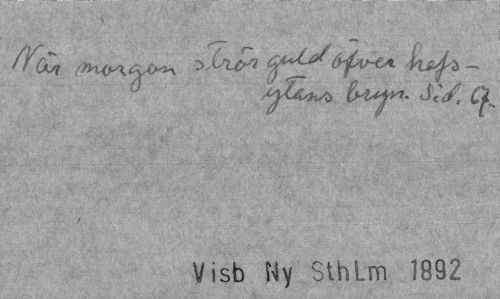 När morgon strör guld öfver hafs-
ytans bryn. Sid. 67.
Visb Ny SthLm 1892